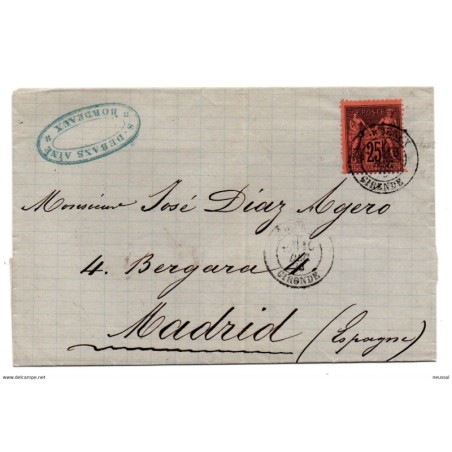 S. DEBANS AINÉ
BORDEAUX
25
GIRONDE
Monsieur José Díaz Agero
GIRONDE
4. Bergara 4
Madrid (Espagne)
https://www.delcampe.net
neussal